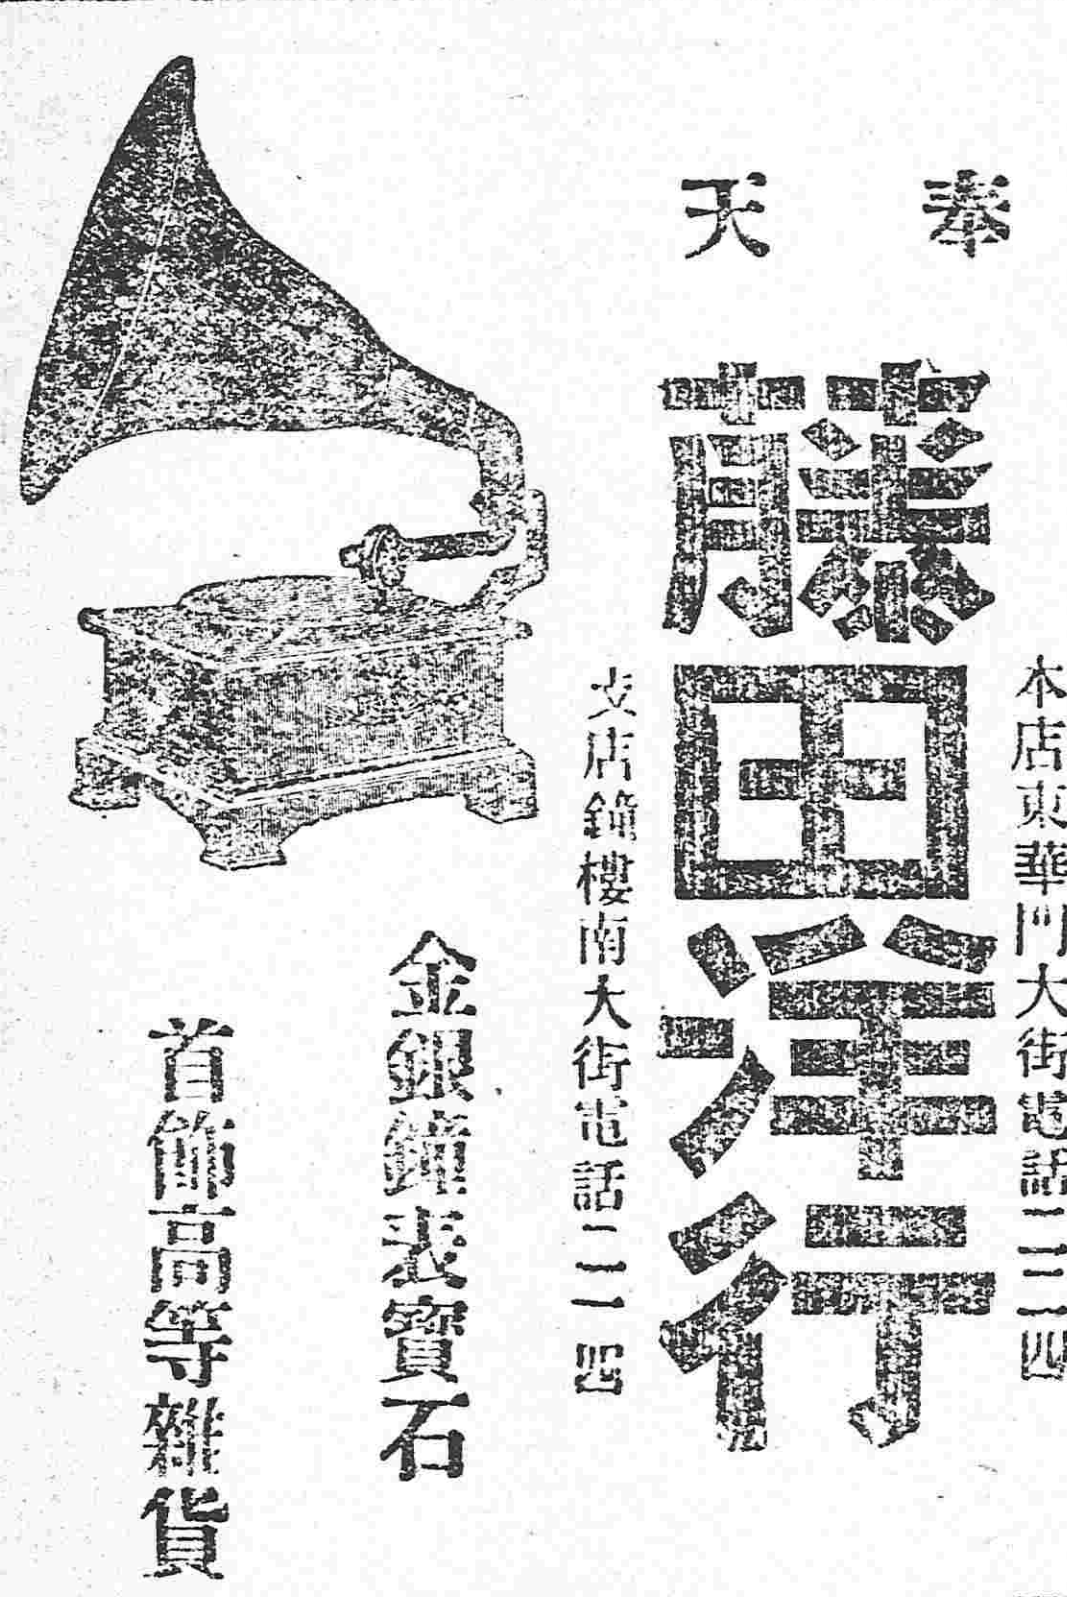 奉天
本店東華門大街電話二三一四
藤田洋行
支店鐘樓南大街電話二二一四
金銀鐘表寶石
首飾高等雜貨